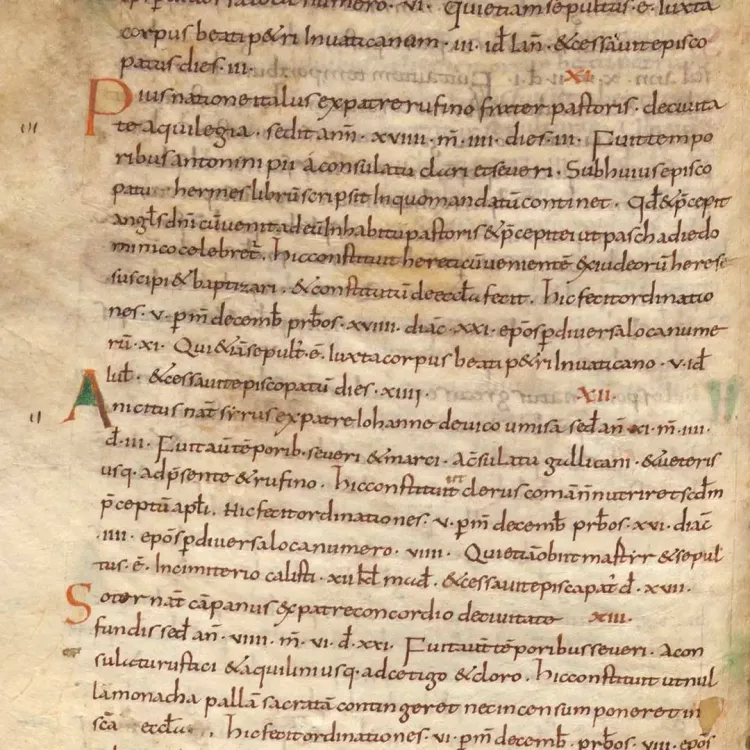 numero · vi · Quietiam sepultus · ē · luxta
corpus beati p&ri Inuaticanum · iii · id Ian̄ · & cessauit episco
patus dies · iii ·
xi
Pius natione italus expatre rufino frater pastoris · deciuita
te aquilegia · sedit ann̄ · xviiii · m̄ · iiii · dies · iii · Fuit tempo
ribus antonini pii a consulatu clari et seueri · Subhuius episco
patu hermes librū scripsit Inquo mandatū continet · Qd̄ & p̄cepit
angl̄s dn̄i cū uenit adeū Inhabitu pastoris & p̄cepit ei ut pascha die do
minico celebret̄ · hic constituit hereticū uenientē & iudeorū herese
suscipi & baptizari · & constitutū de eccl̄a fecit · hic fecit ordinatio
nes · v · p̄ m̄ decemb̄ · prb̄os · xviiii · diac̄ · xxi · ep̄os p̄ diuersa loca nume
rū · xi · Qui & iā sepult̄ · ē · Iuxta corpus beati p&ri Inuaticano · v · id
Iul̄ · & cessauit episcopatū dies · xiiii ·
xii ·
Anicitus nat̄ syrus expatre Iohanne de uico umisa sed̄ añ · xi · m̄ · iiii ·
d̄ · iii · Fuit aūt tēporib · seueri & marci · A cōsulatu gallicani · & ueteris
usq · ad p̄sente & rufino · hic constituit ut clerus comā n̄ nutriret scd̄m
p̄ceptū apl̄i · Hic fecit ordinationes · v · p̄ m̄ decemb̄ prb̄os · xvi · diac̄
· iiii · ep̄os p̄ diuersa loca numero · viiii · Qui etiā obiit martyr & sepul
tus · ē · Incimiterio calisti · xii kl̄ mad̄ · & cessauit episcapat̄ · d̄ · xvii ·
Soter nat̄ cāpanus expatre concordio deciuitate
xiii ·
fundis sed̄ an̄ · viiii · m̄ · vi · d̄ · xxi · Fuit aūt tēporibus seueri · A con
sulatu rustici & aquilini usq · ad cetigo & cloro · hic constituit ut nul
la monacha pallā sacratā contingeret nec incensum poneret in
sc̄a eccl̄a · hic fecit ordinationes · vi · p̄ m̄ decemb̄ · prb̄os · viii · ep̄os